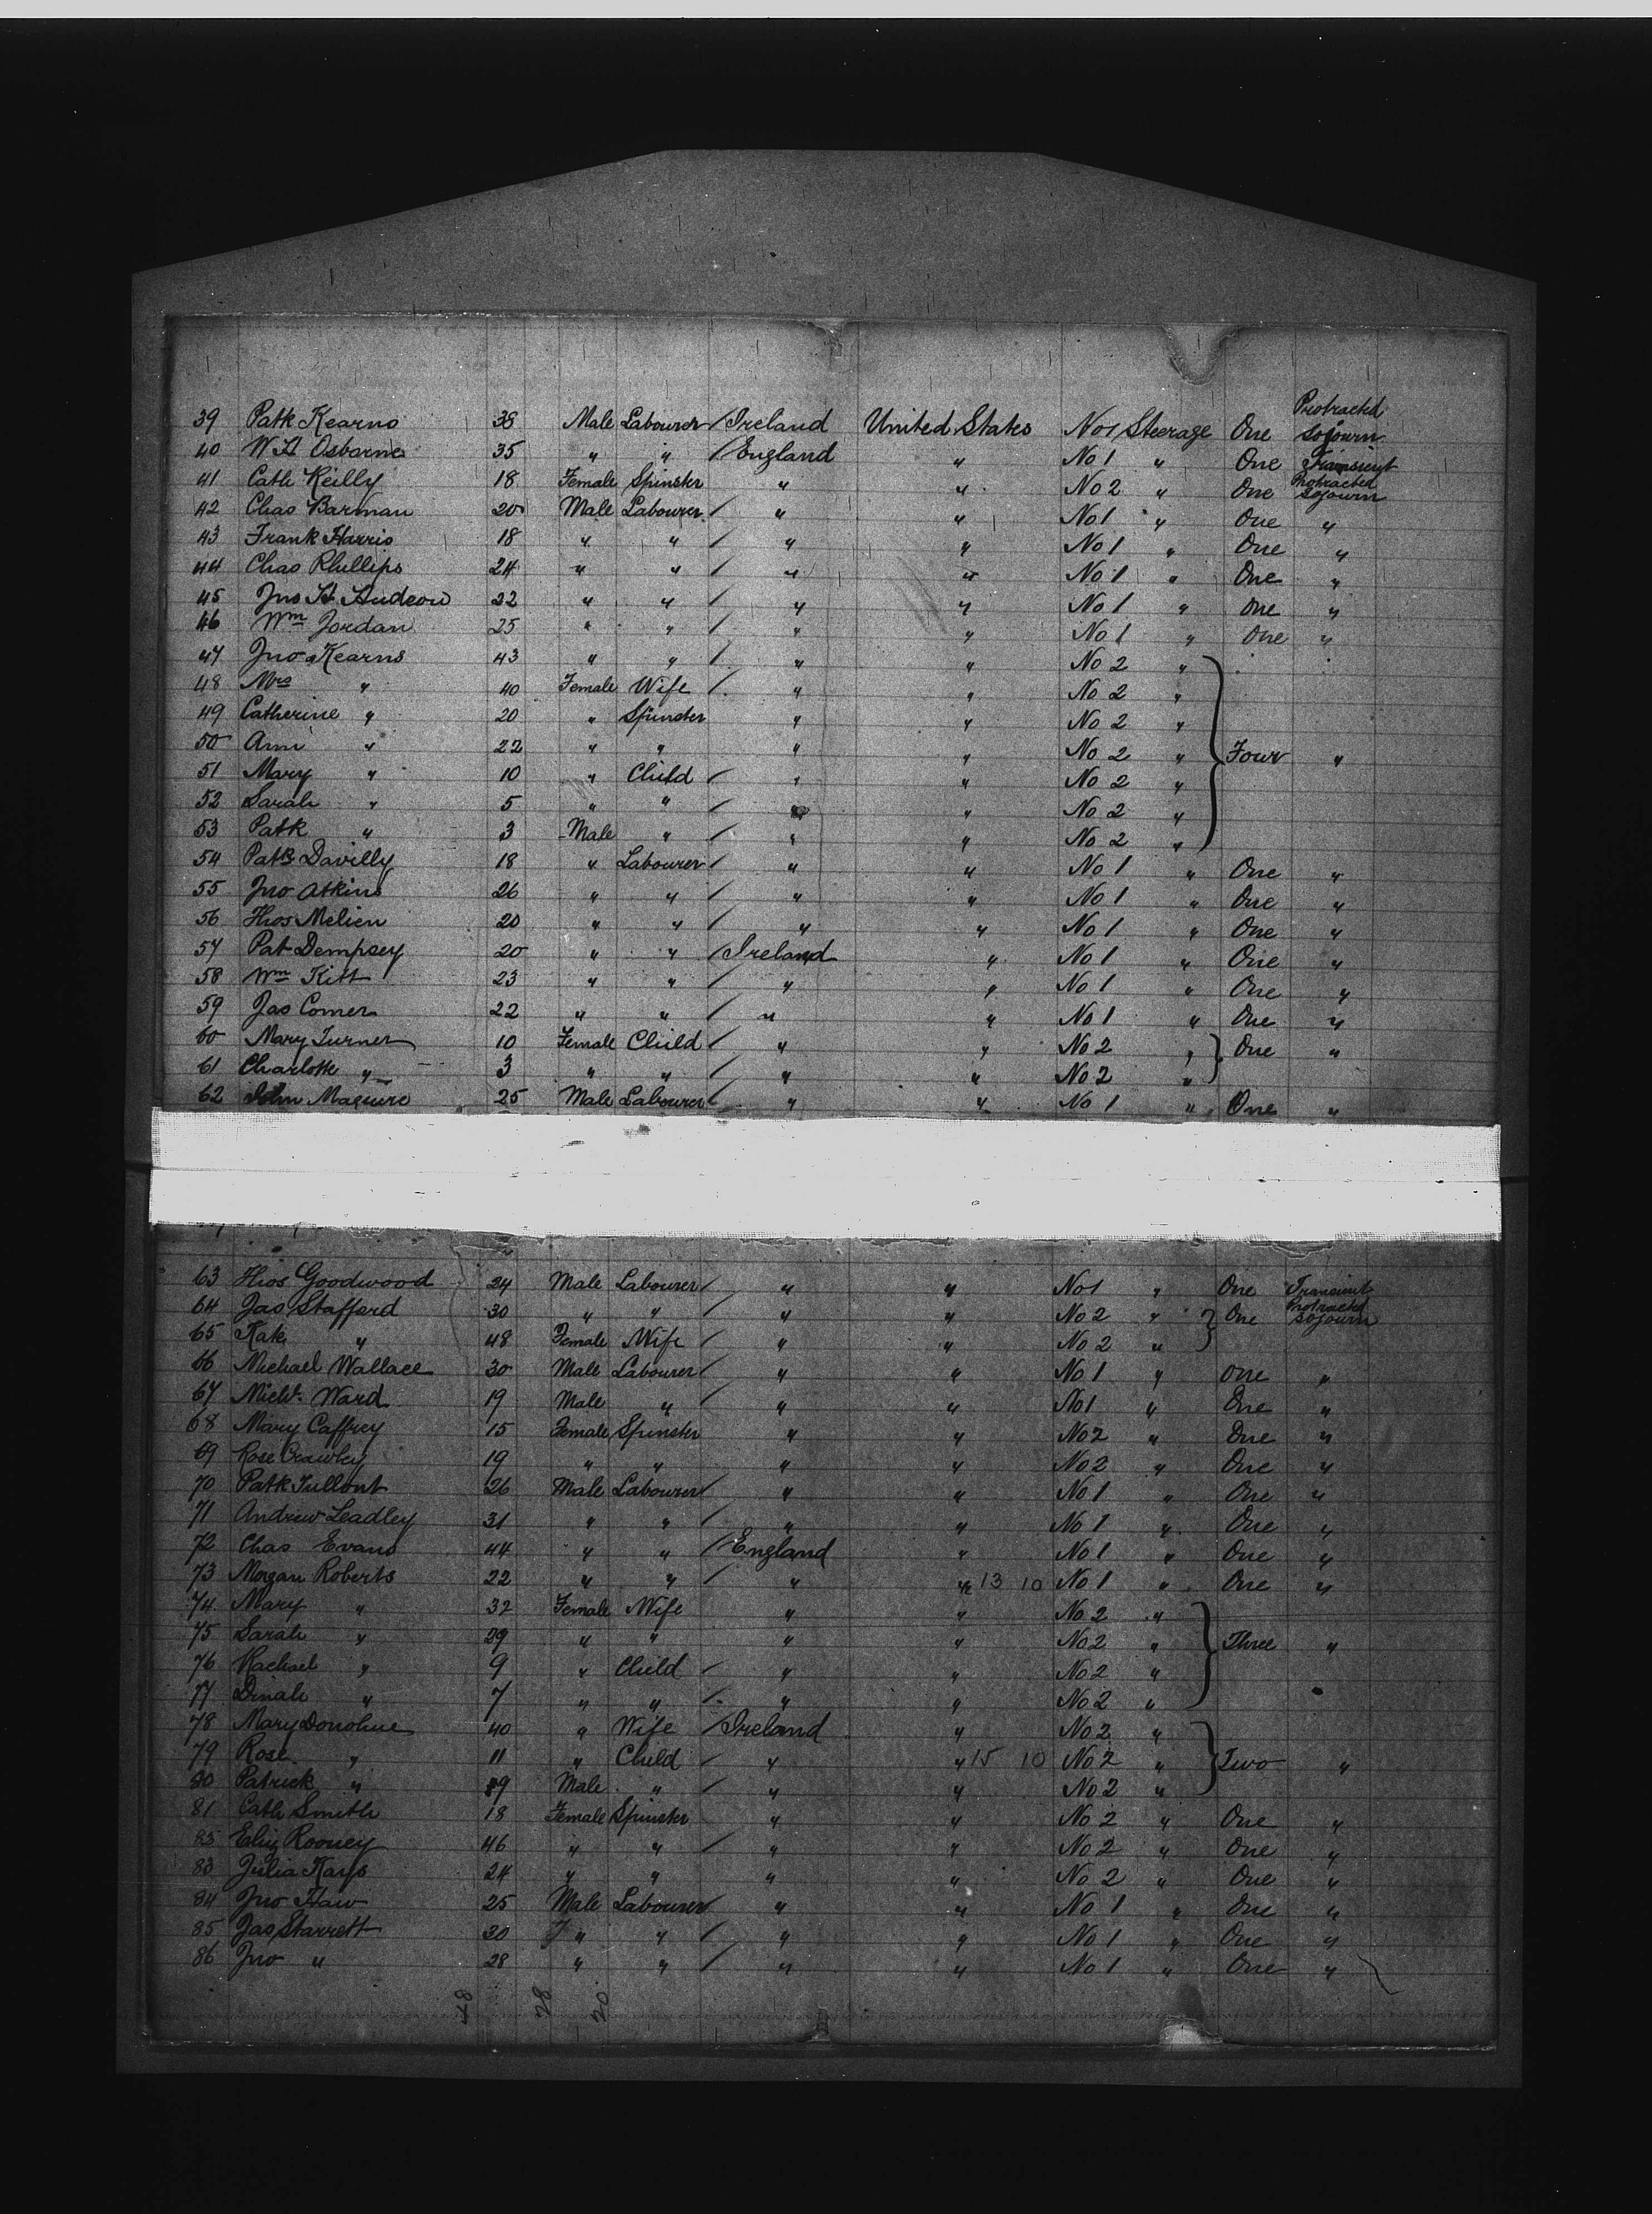 39 Patk Kearns 38 Male Labourer / Ireland United States No 1 Steerage One Protracted sojourn
40 W H Osborne 35 " " / England " No 1 " One Transient
41 Cath Reilly 18 Female Spinster " " No 2 " One Protracted sojourn
42 Chas Barman 20 Male Labourer / " " No 1 " One "
43 Frank Harris 18 " " / " " No 1 " One "
44 Chas Phillips 24 " " / " " No 1 " One "
45 Jno H Hudson 22 " " / " " No 1 " One "
46 Wm Jordan 25 " " / " " No 1 " One "
47 Jno Kearns 43 " " / " " No 2 "
48 Mrs " 40 Female Wife / " " No 2 "
49 Catherine " 20 " Spinster " " No 2 "
50 Ann " 22 " " " " No 2 " Four "
51 Mary " 10 " Child / " " No 2 "
52 Sarah " 5 " " / " " No 2 "
53 Patk " 3 Male " / " " No 2 "
54 Patk Davilly 18 " Labourer / " " No 1 " One "
55 Jno Atkins 26 " " / " " No 1 " One "
56 Thos Melien 20 " " / " " No 1 " One "
57 Pat Dempsey 20 " " / Ireland " No 1 " One "
58 Wm Kitt 23 " " / " " No 1 " One "
59 Jas Comer 22 " " / " " No 1 " One "
60 Mary Turner 10 Female Child / " " No 2 " One "
61 Charlotte " 3 " " / " " No 2 "
62 John Maguire 25 Male Labourer / " " No 1 " One "
63 Thos Goodwood 24 Male Labourer / " " No 1 " One Transient
64 Jas Stafford 30 " " / " " No 2 " One Protracted sojourn
65 Kate " 48 Female Wife / " " No 2 "
66 Michael Wallace 30 Male Labourer / " " No 1 " One "
67 Michl. Ward 19 Male " / " " No 1 " One "
68 Mary Caffrey 15 Female Spinster " " No 2 " One "
69 Rose Crawley 19 " " " " No 2 " One "
70 Patk 26 Male Labourer / " " No 1 " One "
71 Andrew Leadley 31 " " / " " No 1 " One "
72 Chas Evans 44 " " / England " No 1 " One "
73 Morgan Roberts 22 " " / " " 13 10 No 1 " One "
74 Mary " 32 Female Wife " " No 2 "
75 Sarah " 29 " " " " No 2 " Three "
76 Rachael " 9 " Child / " " No 2 "
77 Dinah " 7 " " / " " No 2 "
78 Mary Donohue 40 " Wife / Ireland " No 2 "
79 Rose " 11 " Child / " " 15 10 No 2 " Two "
80 Patrick " 9 Male " / " " No 2 "
81 Cath Smith 18 Female Spinster " " No 2 " One "
Eliz Rooney 46 " " / " " No 2 " One "
83 Julia Kays 24 " " " " No 2 " One "
84 Jno Haw 25 Male Labourer / " " No 1 " One "
85 Jas Starrett 30 " " / " " No 1 " One "
86 Jno " 28 " " / " " No 1 " One "
48 28 20